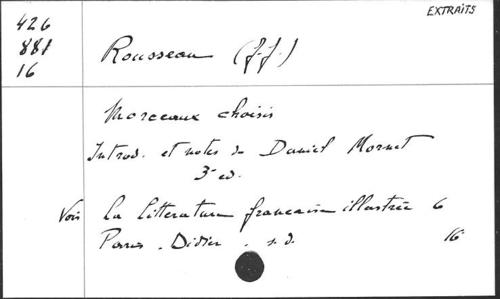 EXTRAITS
426
881
16
Rousseau (J.J.)
Morceaux choisis
Introd. et notes de Daniel Mornet
3e ed.
Voir La littérature française illustrée 6
Paris. Didier. s.d. 16